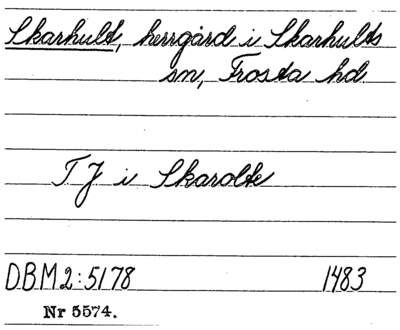 Skarhult, herrgård i Skarhults
sn, Frosta hd
T J i Skarolte
DBM2:5178 1483
Nr 5574.